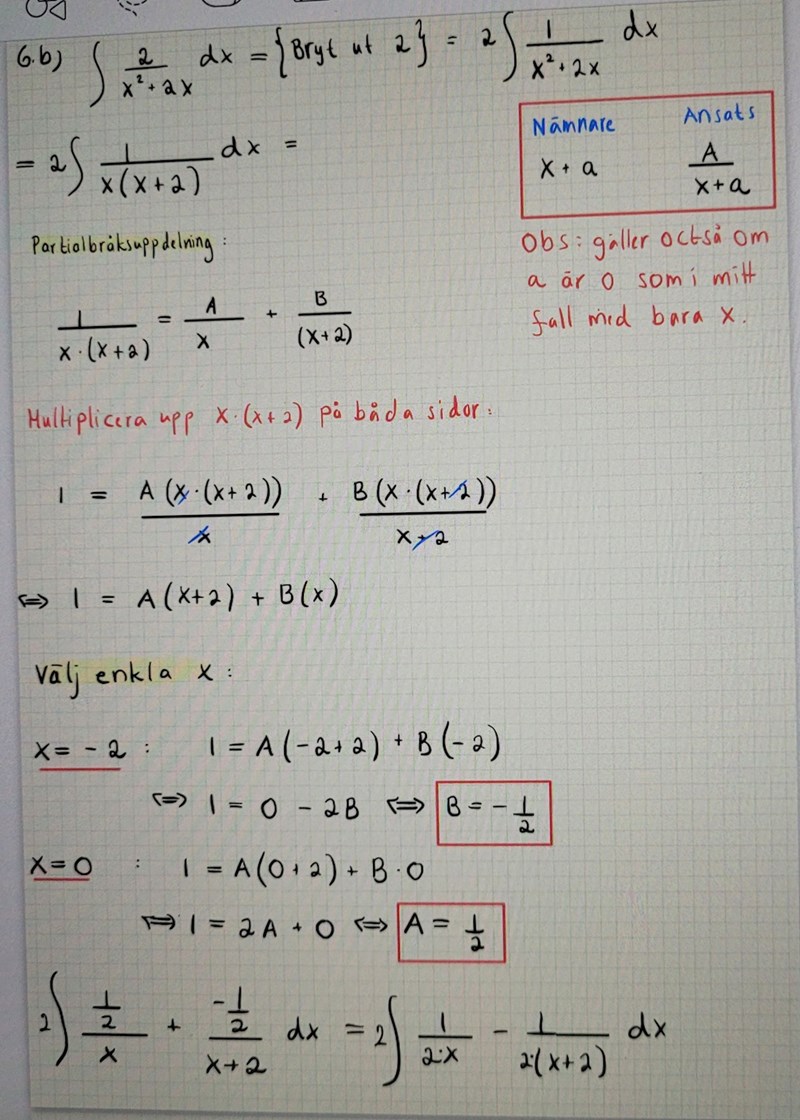 6.b) ∫ 2/(x² + 2x) dx = {Bryt ut 2} = 2∫ 1/(x² + 2x) dx
= 2∫ 1/(x(x+2)) dx =
Nämnare Ansats
x + a A/(x+a)
Obs: gäller också om
a är 0 som i mitt
fall med bara x.
Partialbråksuppdelning:
1/(x·(x+2)) = A/x + B/(x+2)
Multiplicera upp x·(x+2) på båda sidor:
1 = A(x·(x+2))/x + B(x·(x+2))/(x+2)
⇔ 1 = A(x+2) + B(x)
Välj enkla x:
x = -2 : 1 = A(-2+2) + B(-2)
⇔ 1 = 0 - 2B ⇔ B = -1/2
x = 0 : 1 = A(0+2) + B·0
⇔ 1 = 2A + 0 ⇔ A = 1/2
2∫ (1/2)/x + (-1/2)/(x+2) dx = 2∫ 1/(2·x) - 1/(2·(x+2)) dx